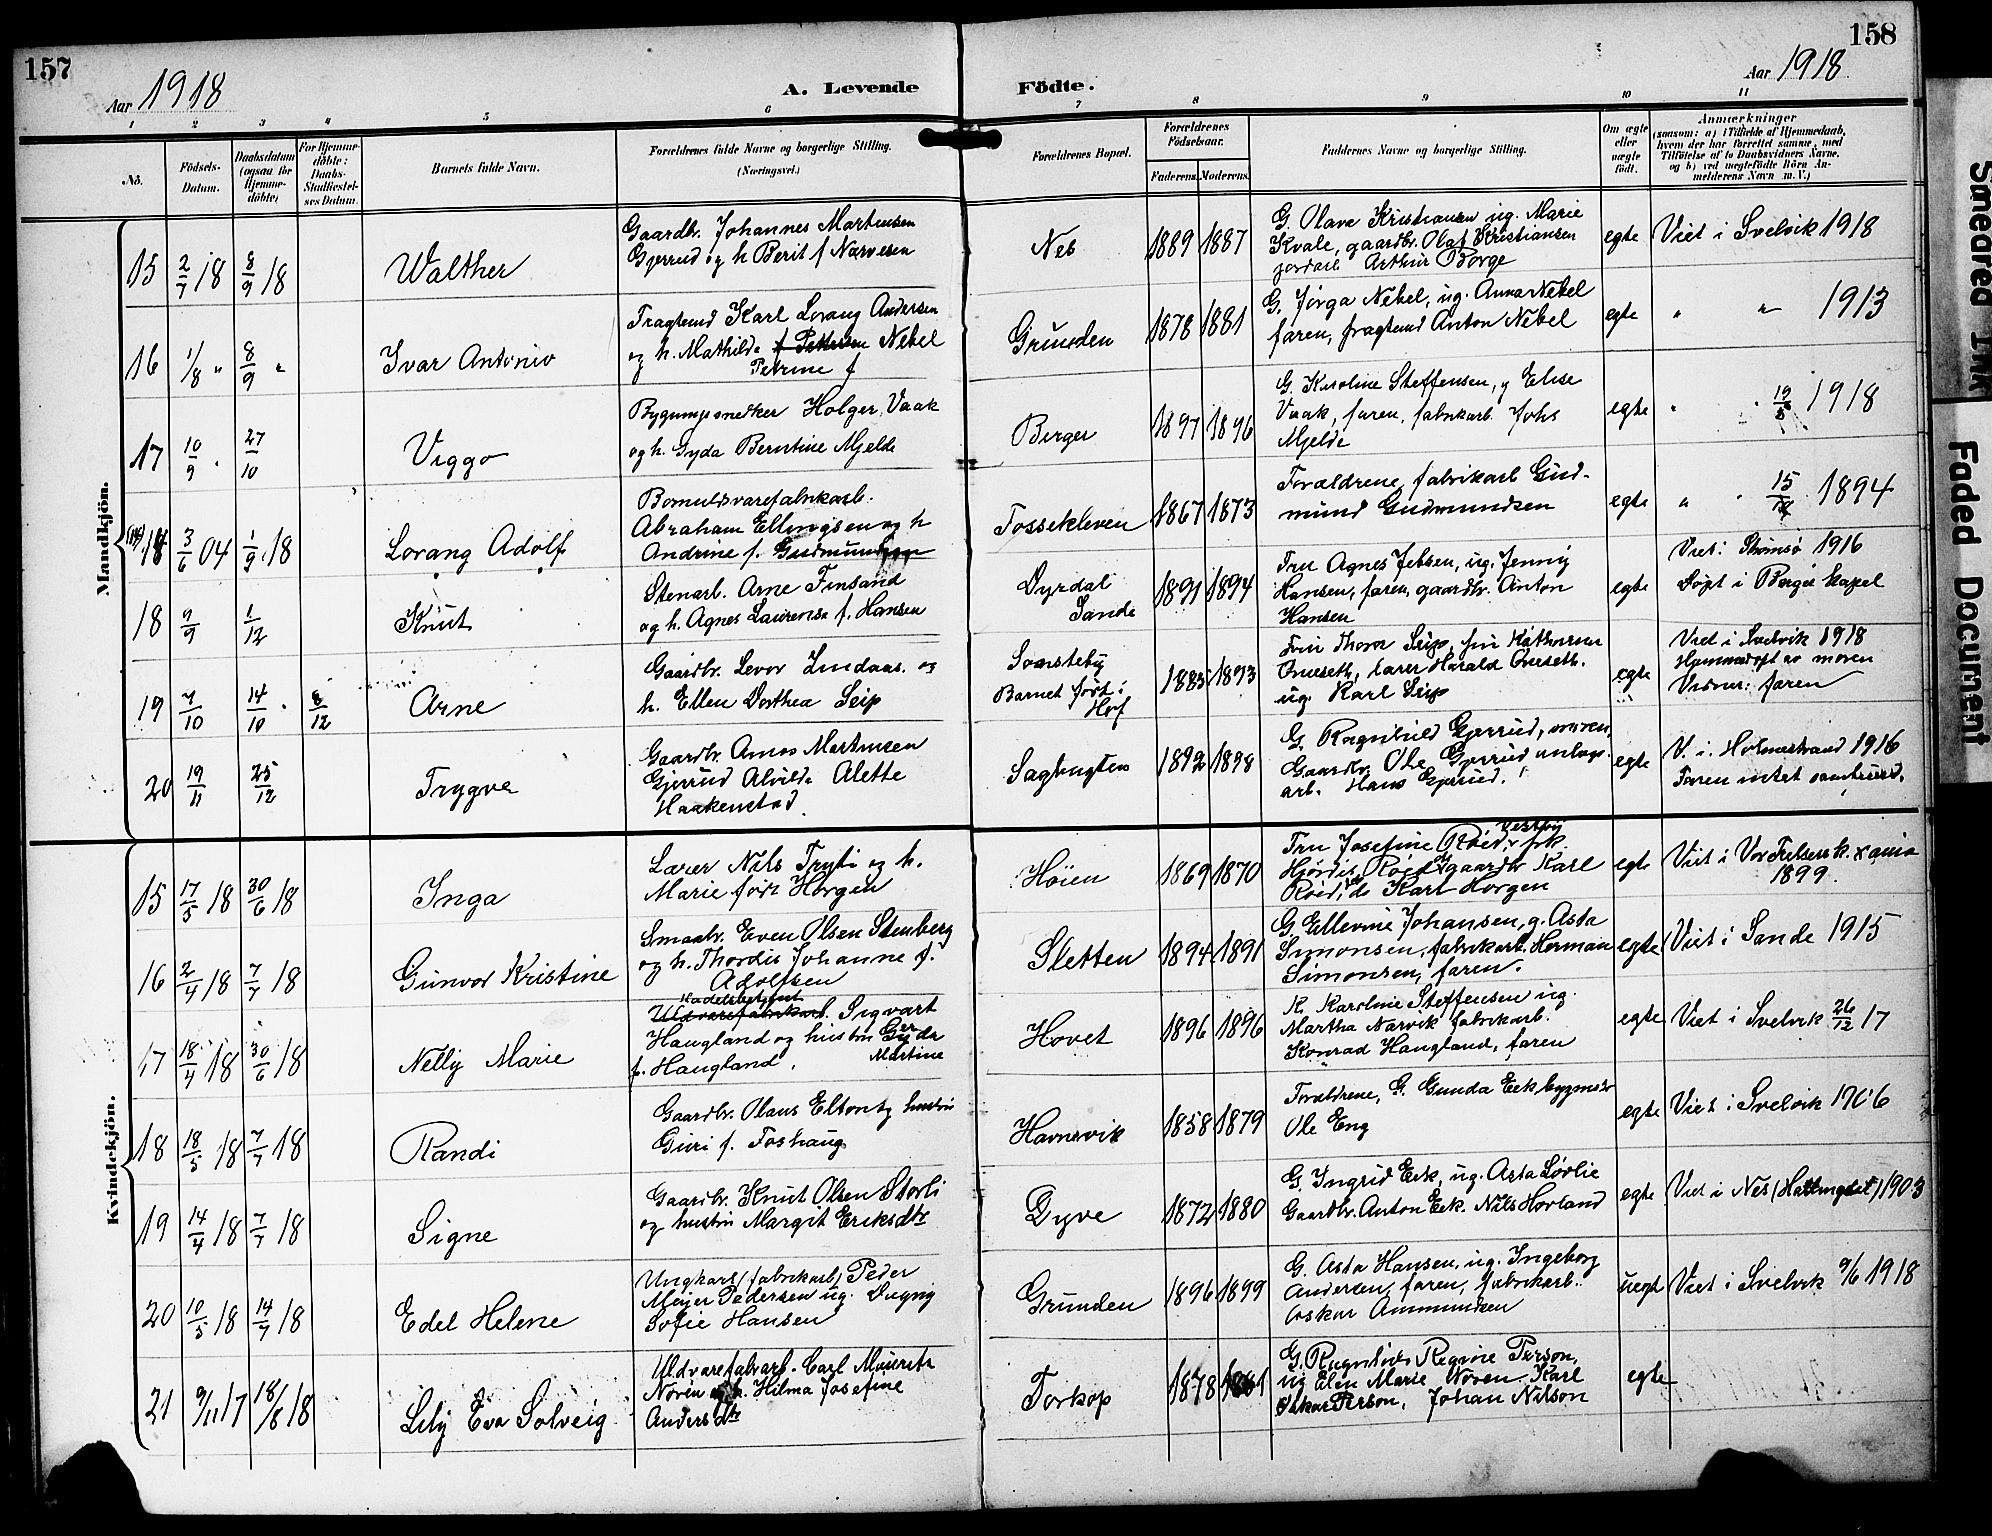 157
158
Aar 1918
A. Levende
Födte.
Aar 1918
1 2 3 4 5 6 7 8 9 10 11
No.
Födsels-
Datum.
Daabsdatum
(ogsaa for
Hjemme-
döbte)
For Hjemme-
döbte:
Daabs-
Stadfæstel-
ses Datum.
Barnets fulde Navn.
Forældrenes fulde Navne og borgerlige Stilling.
(Næringsvei.)
Forældrenes Bopæl.
Forældrenes
Födselsaar.
Faderens. Moderens.
Faddernes Navne og borgerlige Stilling.
Om ægte
eller
uægte
födt.
Anmærkninger
(saasom: a) i Tilfælde af Hjemmedaab,
hvem der har forrettet samme, med
Tilföielse af to Daabsvidners Navne,
og b) ved uegtefödte Börn An-
melderens Navn m. V.)
Mandkjön.
15 2/7 18 8/9 18
Walther
Gaardbr. Johannes Martinsen
Gjerrud og h Berit f Narvesen
Nes
1889 1887
G. Olave Kristiansen ug. Marie
Kvale, gaardbr. Olaf Kristiansen
Arthur Borge
egte
Viet i Svelvik 1918
16 1/8 " 8/9 "
Ivar Antonio
Fragtemd Karl Lorang Andersen
og h. Mathilde f Pettersen Nebel
Petrine f
Grunden
1878 1881
G. Jörga Nebel, ug. Anna Nebel
faren, fragtemd Anton Nebel
egte
" " 1913
17 10/9 " 27/10
Viggo
Bygningssnedker Holger Vaak
og h. Gyda Berntine Mjelde
Berger
1897 1896
G. Karoline Steffensen, g Elise
Vaak, faren, fabrikarb. Johs
Mjelde
egte
" " 19/5 1918
3/6 04 1/9 18
Lorang Adolf
Bomuldsvarefabrikarb.
Abraham Ellingsen og h
Andrine f. Gudmundsen
Fossekleven
1867 1873
Forældrene, fabrikarb Gud-
mund Gudmundsen
egte
" " 1894
18 9/9 1/12
Knut
Stenarb. Arne Finsand
og h. Agnes Laurense f. Hansen
Dyrdal
Sande
1891 1894
Fru Agnes Jebsen, ug. Jenny
Hansen, faren, gaardbr. Anton
Hansen
egte
Viet i Strömsö 1916
Döpt i Berger kapel
19 7/10 14/10 " 8/12
Arne
Gaardbr. Levor Lindaas og
h. Ellen Dorthea Seip
Barnet födt i
Hof
1885 1893
Fru Thora Seip, fru Kathrine
Overseth, lærer Harald Overseth.
ug. Karl Seip
egte
Viet i Svelvik 1918
Hjemmedöpt av moren
Vidner: faren
20 19/11 25/12
Trygve
Gaardbr. Amos Martinsen
Gjerrud Alvilde Alette
Haakenstad.
Sagbugten
1892 1898
G. Ragnhild Gjerrud, moren,
Gaardbr. Ole Gjerrud anlægs-
arb. Hans Gjerrud.
egte
V. i Holmestrand 1916
Faren intet samfund.
Kvindekjön.
15 17/5 18 30/6 18
Inga
Lærer Nils Tryti og h.
Marie född Horgen
Höien
1869 1870
Fru Josefine Röed, frk.
Vestby
Hjördis Röed gaardbr Karl
Röed, Karl Horgen
egt
Viet i Vor Frelsers k. Xania
1899.
16 2/4 18 7/7 18
Gunvor Kristine
Smaabr. Even Olsen Stenberg
og h. Thordis Johanne f.
Adolfsen
Sletten
1894 1891
G. Ellevine Johansen, g. Asta
Simonsen, fabrikarb. Herman
Simonsen, faren.
egte
Viet i Sande 1915
17 18/4 18 30/6 18
Nelly Marie
Uldvarefabrikarb. Sigvart
Haugland og hustru Gyda
Martine
f. Haugland.
Hovet
1896 1896
K. Karoline Steffensen ug.
Martha Narvik fabrikarb.
Konrad Haugland, faren
egte
Viet i Svelvik 26/12 17
18 18/5 18 7/7 18
Randi
Gaardbr. Olaus Elton og hustru
Guri f. Foshaug
Havnevik
1858 1879
Forældrene, G. Gunda Eek bygmstr
Ole Eng
egte
Viet i Svelvik 1906
19 14/4 18 7/7 18
Signe
Gaardbr. Knut Olsen Storli
og hustru Margit Eriksdtr
Dyve
1872 1880
G. Ingrid Eek, ug. Asta Lörlie
Gaardbr. Anton Eek. Nils Hovland
egte
Viet i Nes (Hallingdal) 1903
20 10/5 18 14/7 18
Edel Helene
Ungkarl (fabrikarb) Peder
Meyer Pedersen ug. Dagny
Sofie Hansen
Grunden
1896 1899
G. Asta Hansen, ug. Ingeborg
Andersen, faren, fabrikarb.
Oskar Ammundsen
uegt
Viet i Svelvik 9/6 1918
21 9/11 17 18/8 18
Lily Eva Solveig
Uldvarefabarb. Carl Mauritz
Noren og h. Hilma Josefine
Andersdtr
Torkop
1878
G. Regine Person,
ug Elin Marie Noren Karl
Oskar Person, Johan Nilson
egte
Smeared Ink
Faded Document